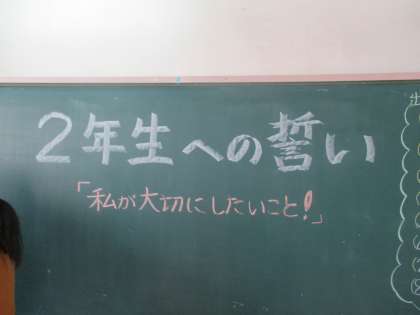 2年生への誓い
「私が大切にしたいこと!」